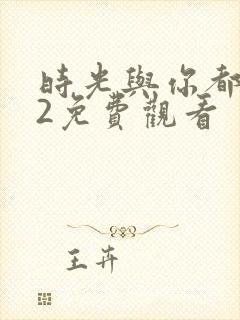 時光與你都
2免費觀看
王卉